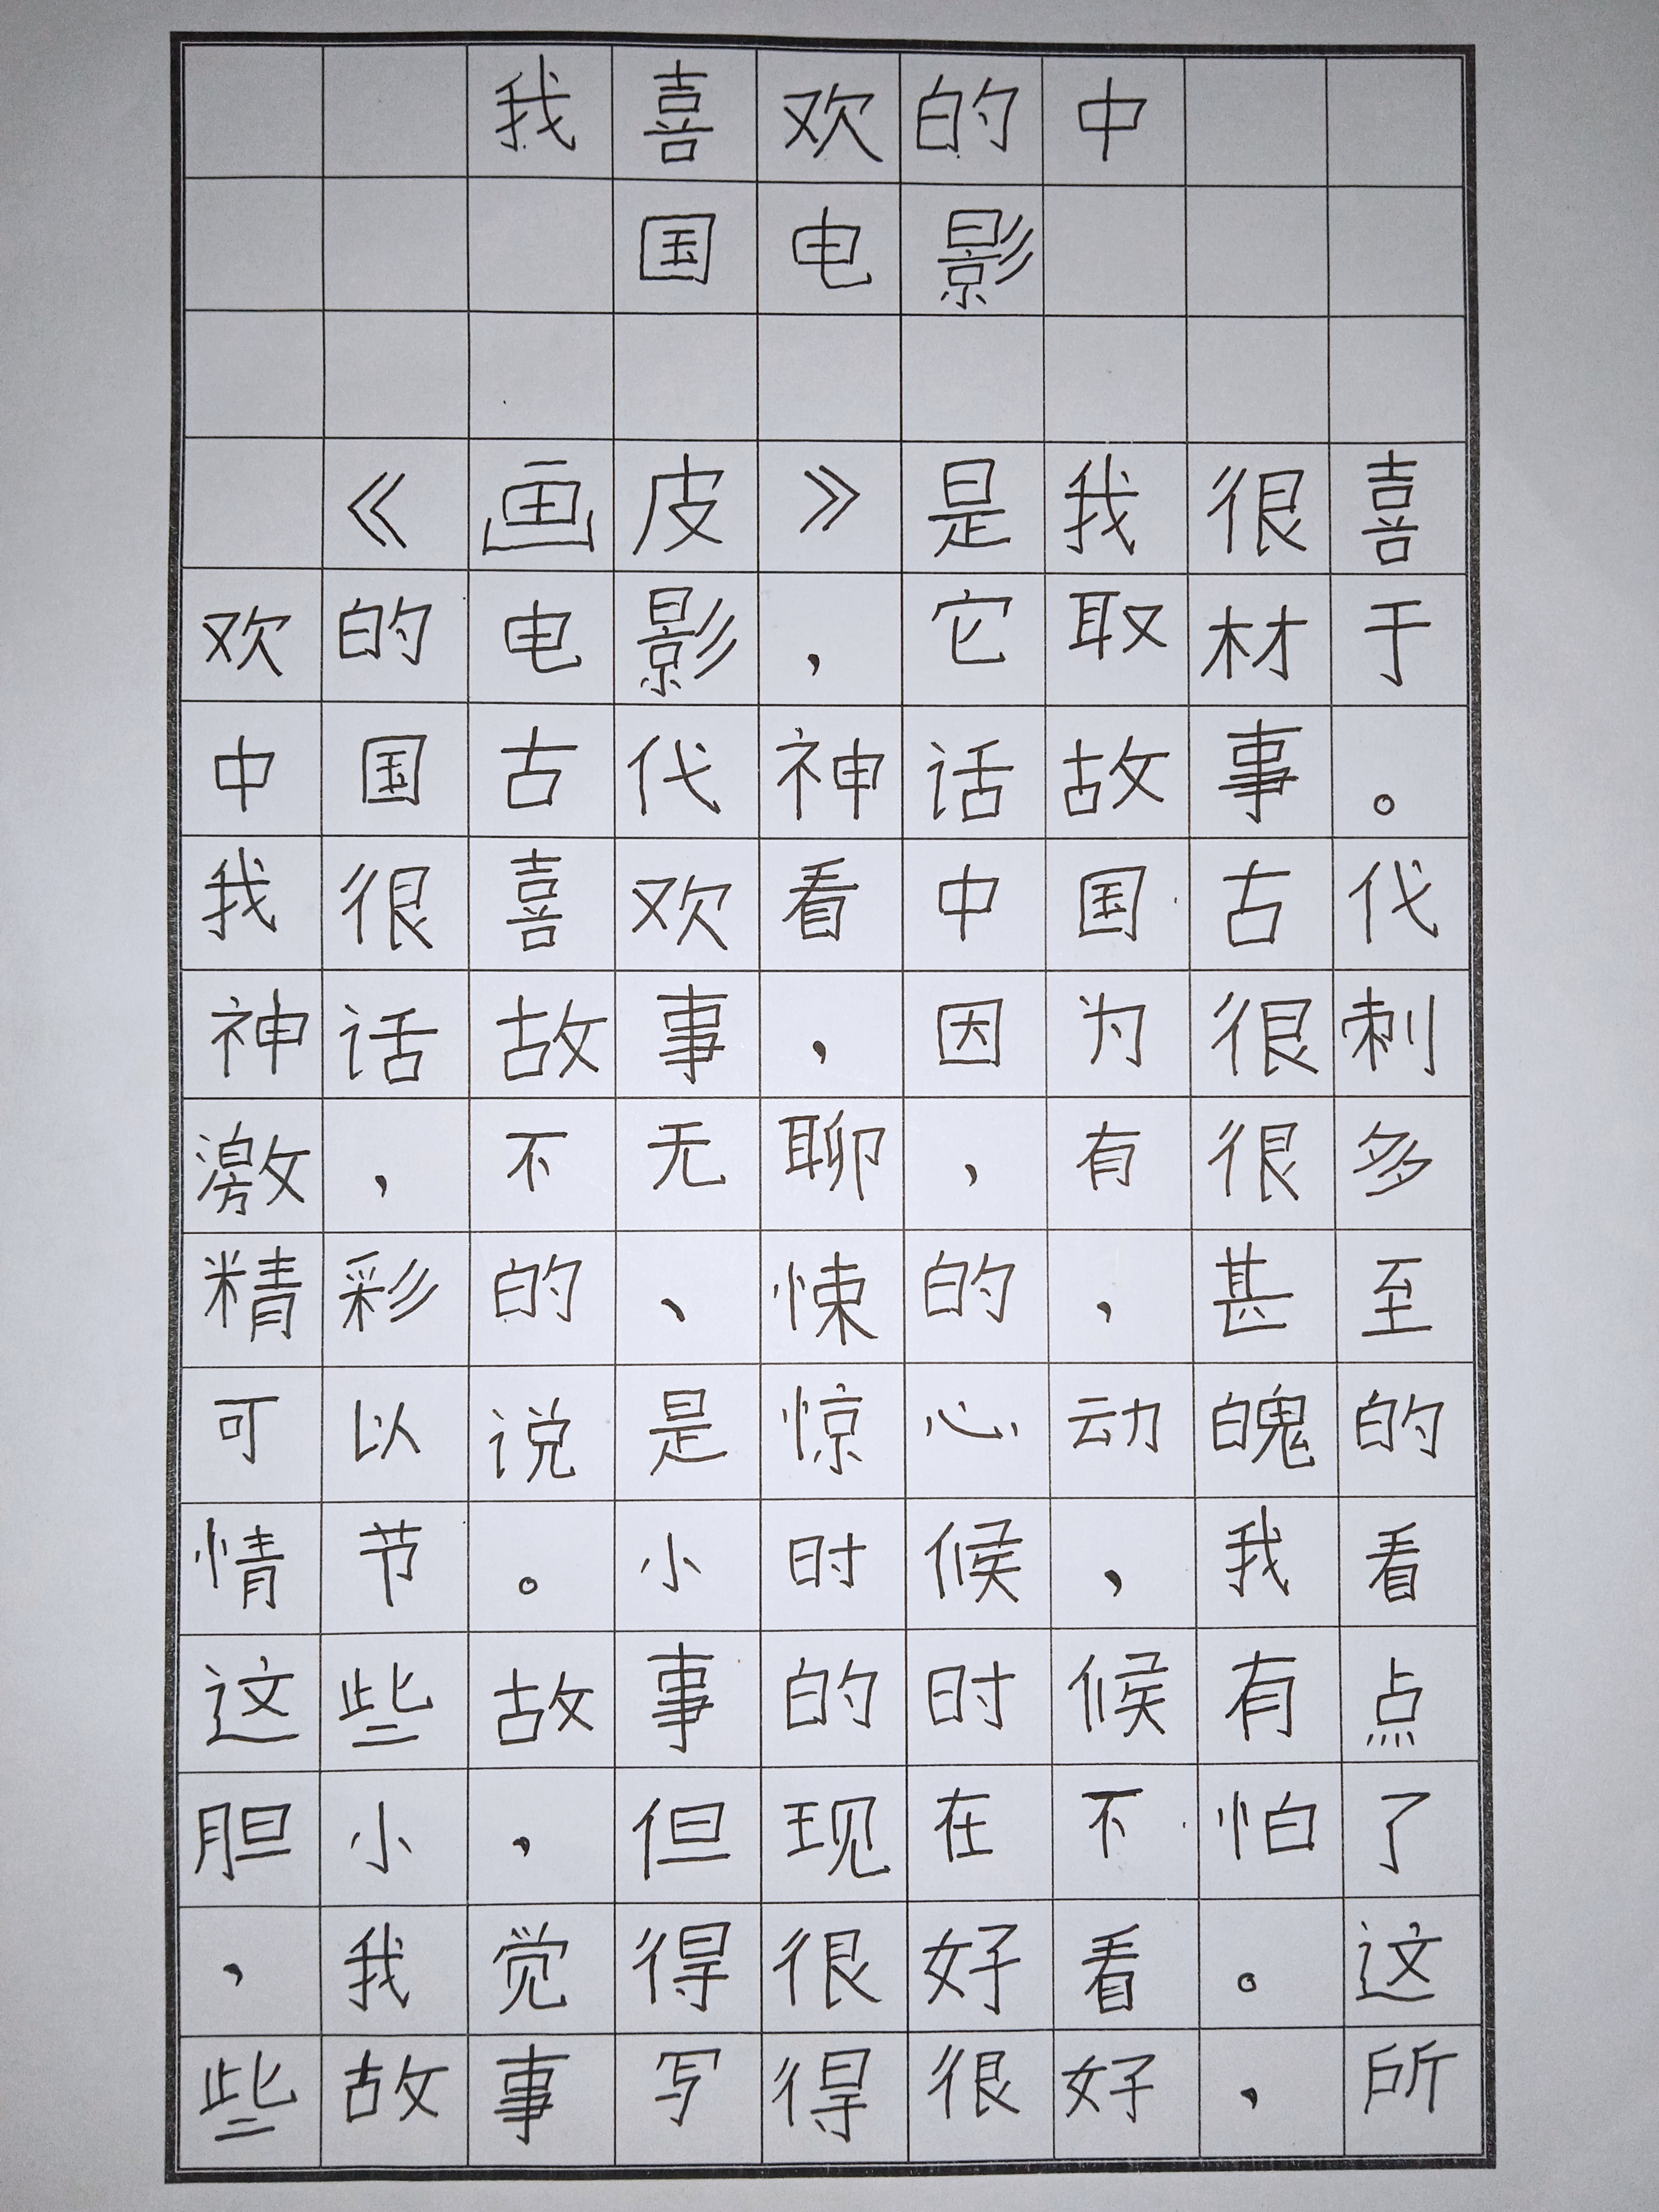 我喜欢的中
国电影
《画皮》是我很喜
欢的电影，它取材于
中国古代神话故事。
我很喜欢看中国古代
神话故事，因为很刺
激，不无聊，有很多
精彩的、悚的，甚至
可以说是惊心动魄的
情节。小时候，我看
这些故事的时候有点
胆小，但现在不怕了
，我觉得很好看。这
些故事写得很好，所